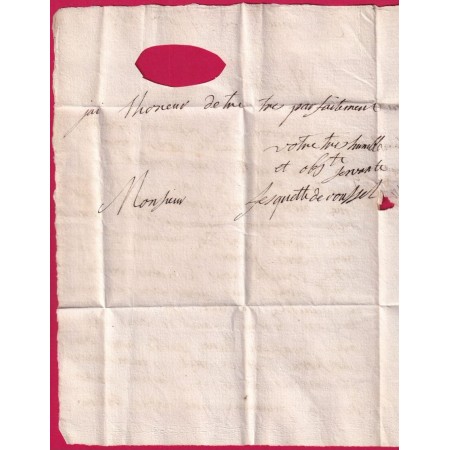 jai lhoneur detre tres parfaitement
votre tres humble
et obste servante
Monsieur de roussel